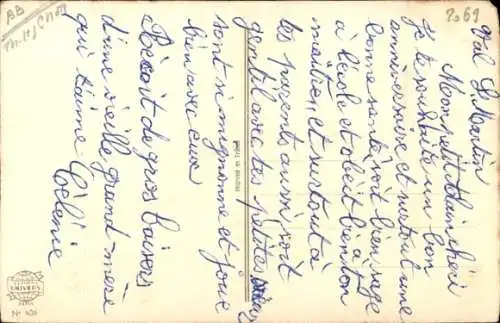 Val St Martin
Mon petit Alain chéri
Je te souhaite un bon
anniversaire et surtout une
bonne santé soit bien sage
à l'école et obéit bien ton
maître et surtout à
tes parents aussi soit
gentil avec tes petites sœurs
sont si mignonne et joue
bien avec eux
Reçoit de gros baisers
d'une vieille grand-mère
qui t'aime
Célénie
AB
2069
UNIVERS
N° 406